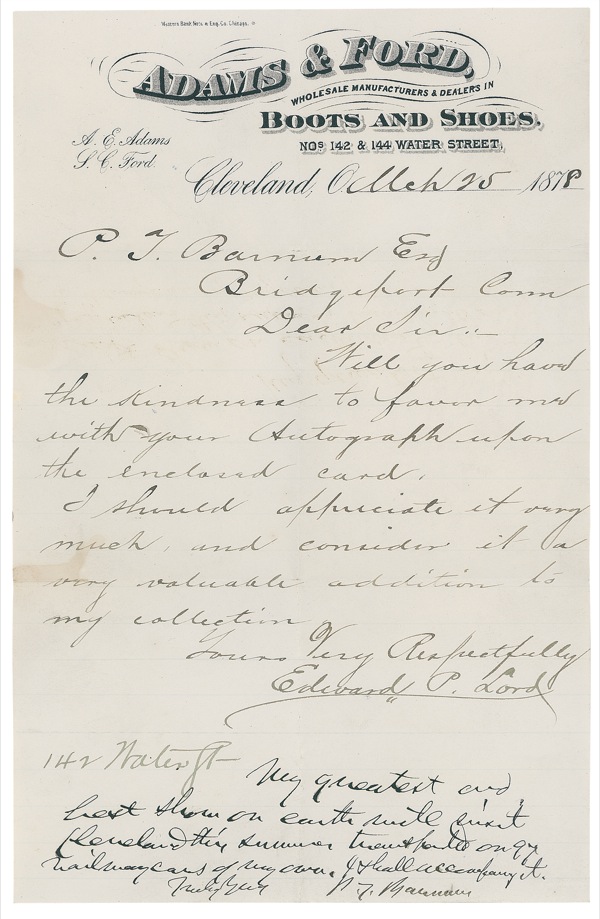 Western Bank Note & Eng. Co. Chicago.
ADAMS & FORD,
WHOLESALE MANUFACTURERS & DEALERS IN
BOOTS AND SHOES.
NOS 142 & 144 WATER STREET,
A. E. Adams
S. C. Ford.
Cleveland, O. Mch 25 1878
P. T. Barnum Esq
Bridgeport Conn
Dear Sir:-
Will you have
the kindness to favor me
with your Autograph upon
the enclosed card.
I should appreciate it very
much, and consider it a
very valuable addition to
my collection
Yours Very Respectfully
Edward P. Lord
142 Water St
My greatest and
best show on earth will visit
Cleveland this summer transported on 97
railway cars of my own. I shall accompany it.
Truly yours P. T. Barnum